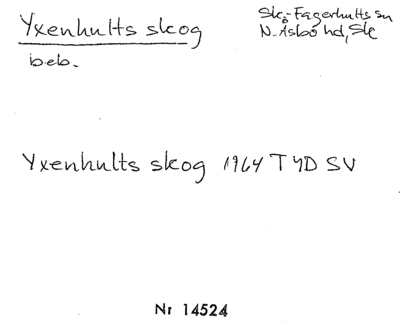 Yxenhults skog
Sk:-Fagerhults sn
N. Åsbo hd, Sk
beb.
Yxenhults skog 1964 T 4D SV
Nr 14524